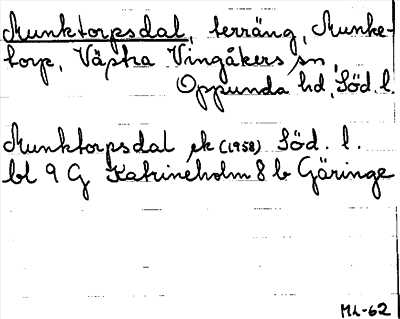 Munktorpsdal, terräng, Munke-
torp, Västra Vingåkers sn,
Oppunda hd, Söd. l.
Munktorpsdal ek (1958) Söd. l.
bl 9 G Katrineholm 8 b Göringe
ML-62